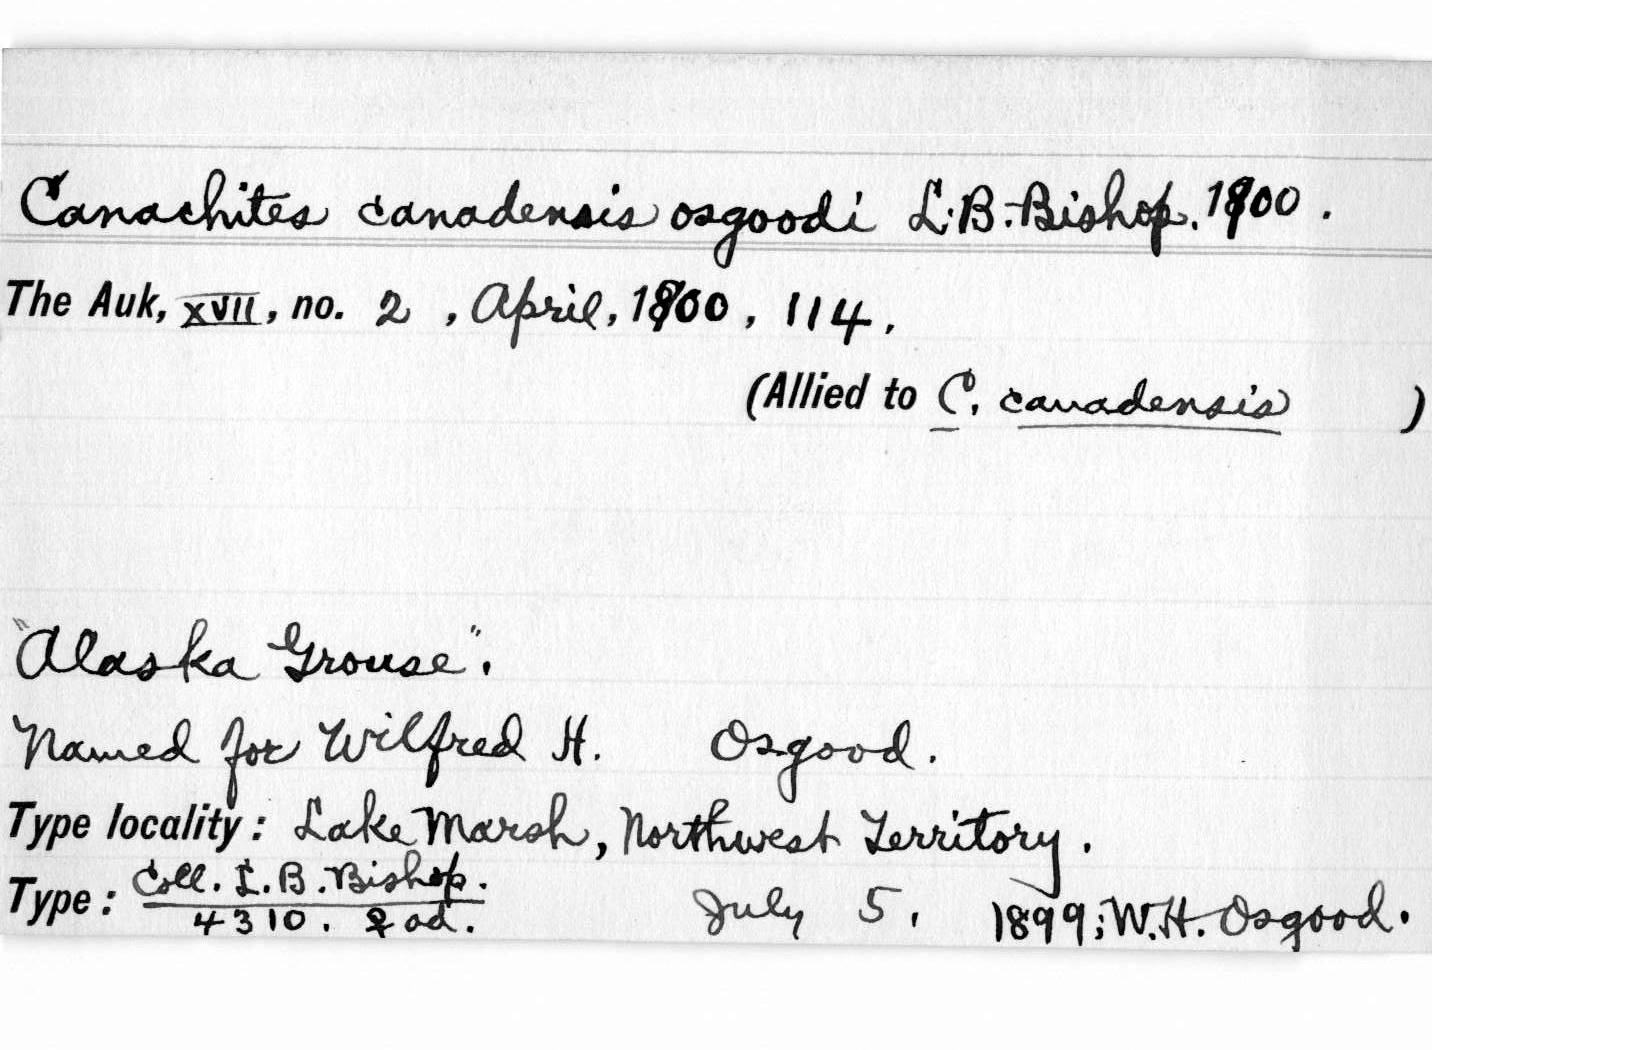 Canachites canadensis osgoodi L.B. Bishop. 1900.
The Auk, XVII, no. 2, April, 1900, 114.
(Allied to C. canadensis )
"Alaska Grouse".
Named for Wilfred H. Osgood.
Type locality: Lake Marsh, Northwest Territory.
Type: Coll. L.B. Bishop.
4310. ♀ ad. July 5, 1899; W.H. Osgood.